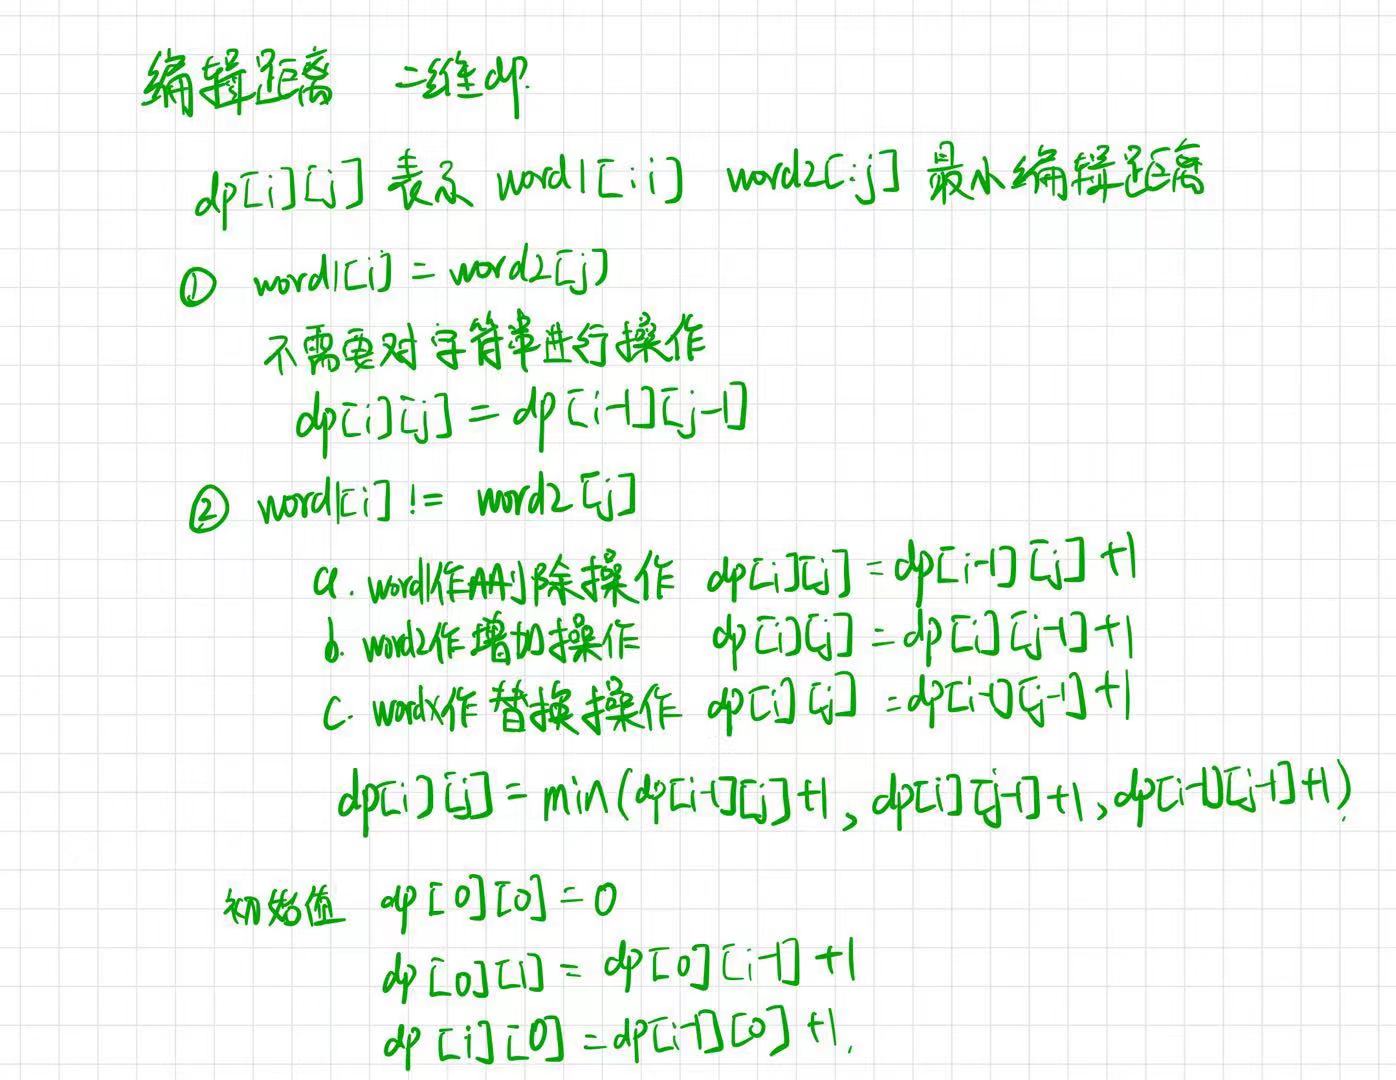 编辑距离 二维dp.
dp[i][j] 表示 word1[:i] word2[:j] 最小编辑距离
① word1[i] = word2[j]
不需要对字符串进行操作
dp[i][j] = dp[i-1][j-1]
② word1[i] != word2[j]
a. word1作删除操作 dp[i][j] = dp[i-1][j]+1
b. word2作增加操作 dp[i][j] = dp[i][j-1]+1
c. wordx作替换操作 dp[i][j] = dp[i-1][j-1]+1
dp[i][j] = min(dp[i-1][j]+1, dp[i][j-1]+1, dp[i-1][j-1]+1)
初始值 dp[0][0] = 0
dp[0][i] = dp[0][i-1]+1
dp[i][0] = dp[i-1][0]+1.